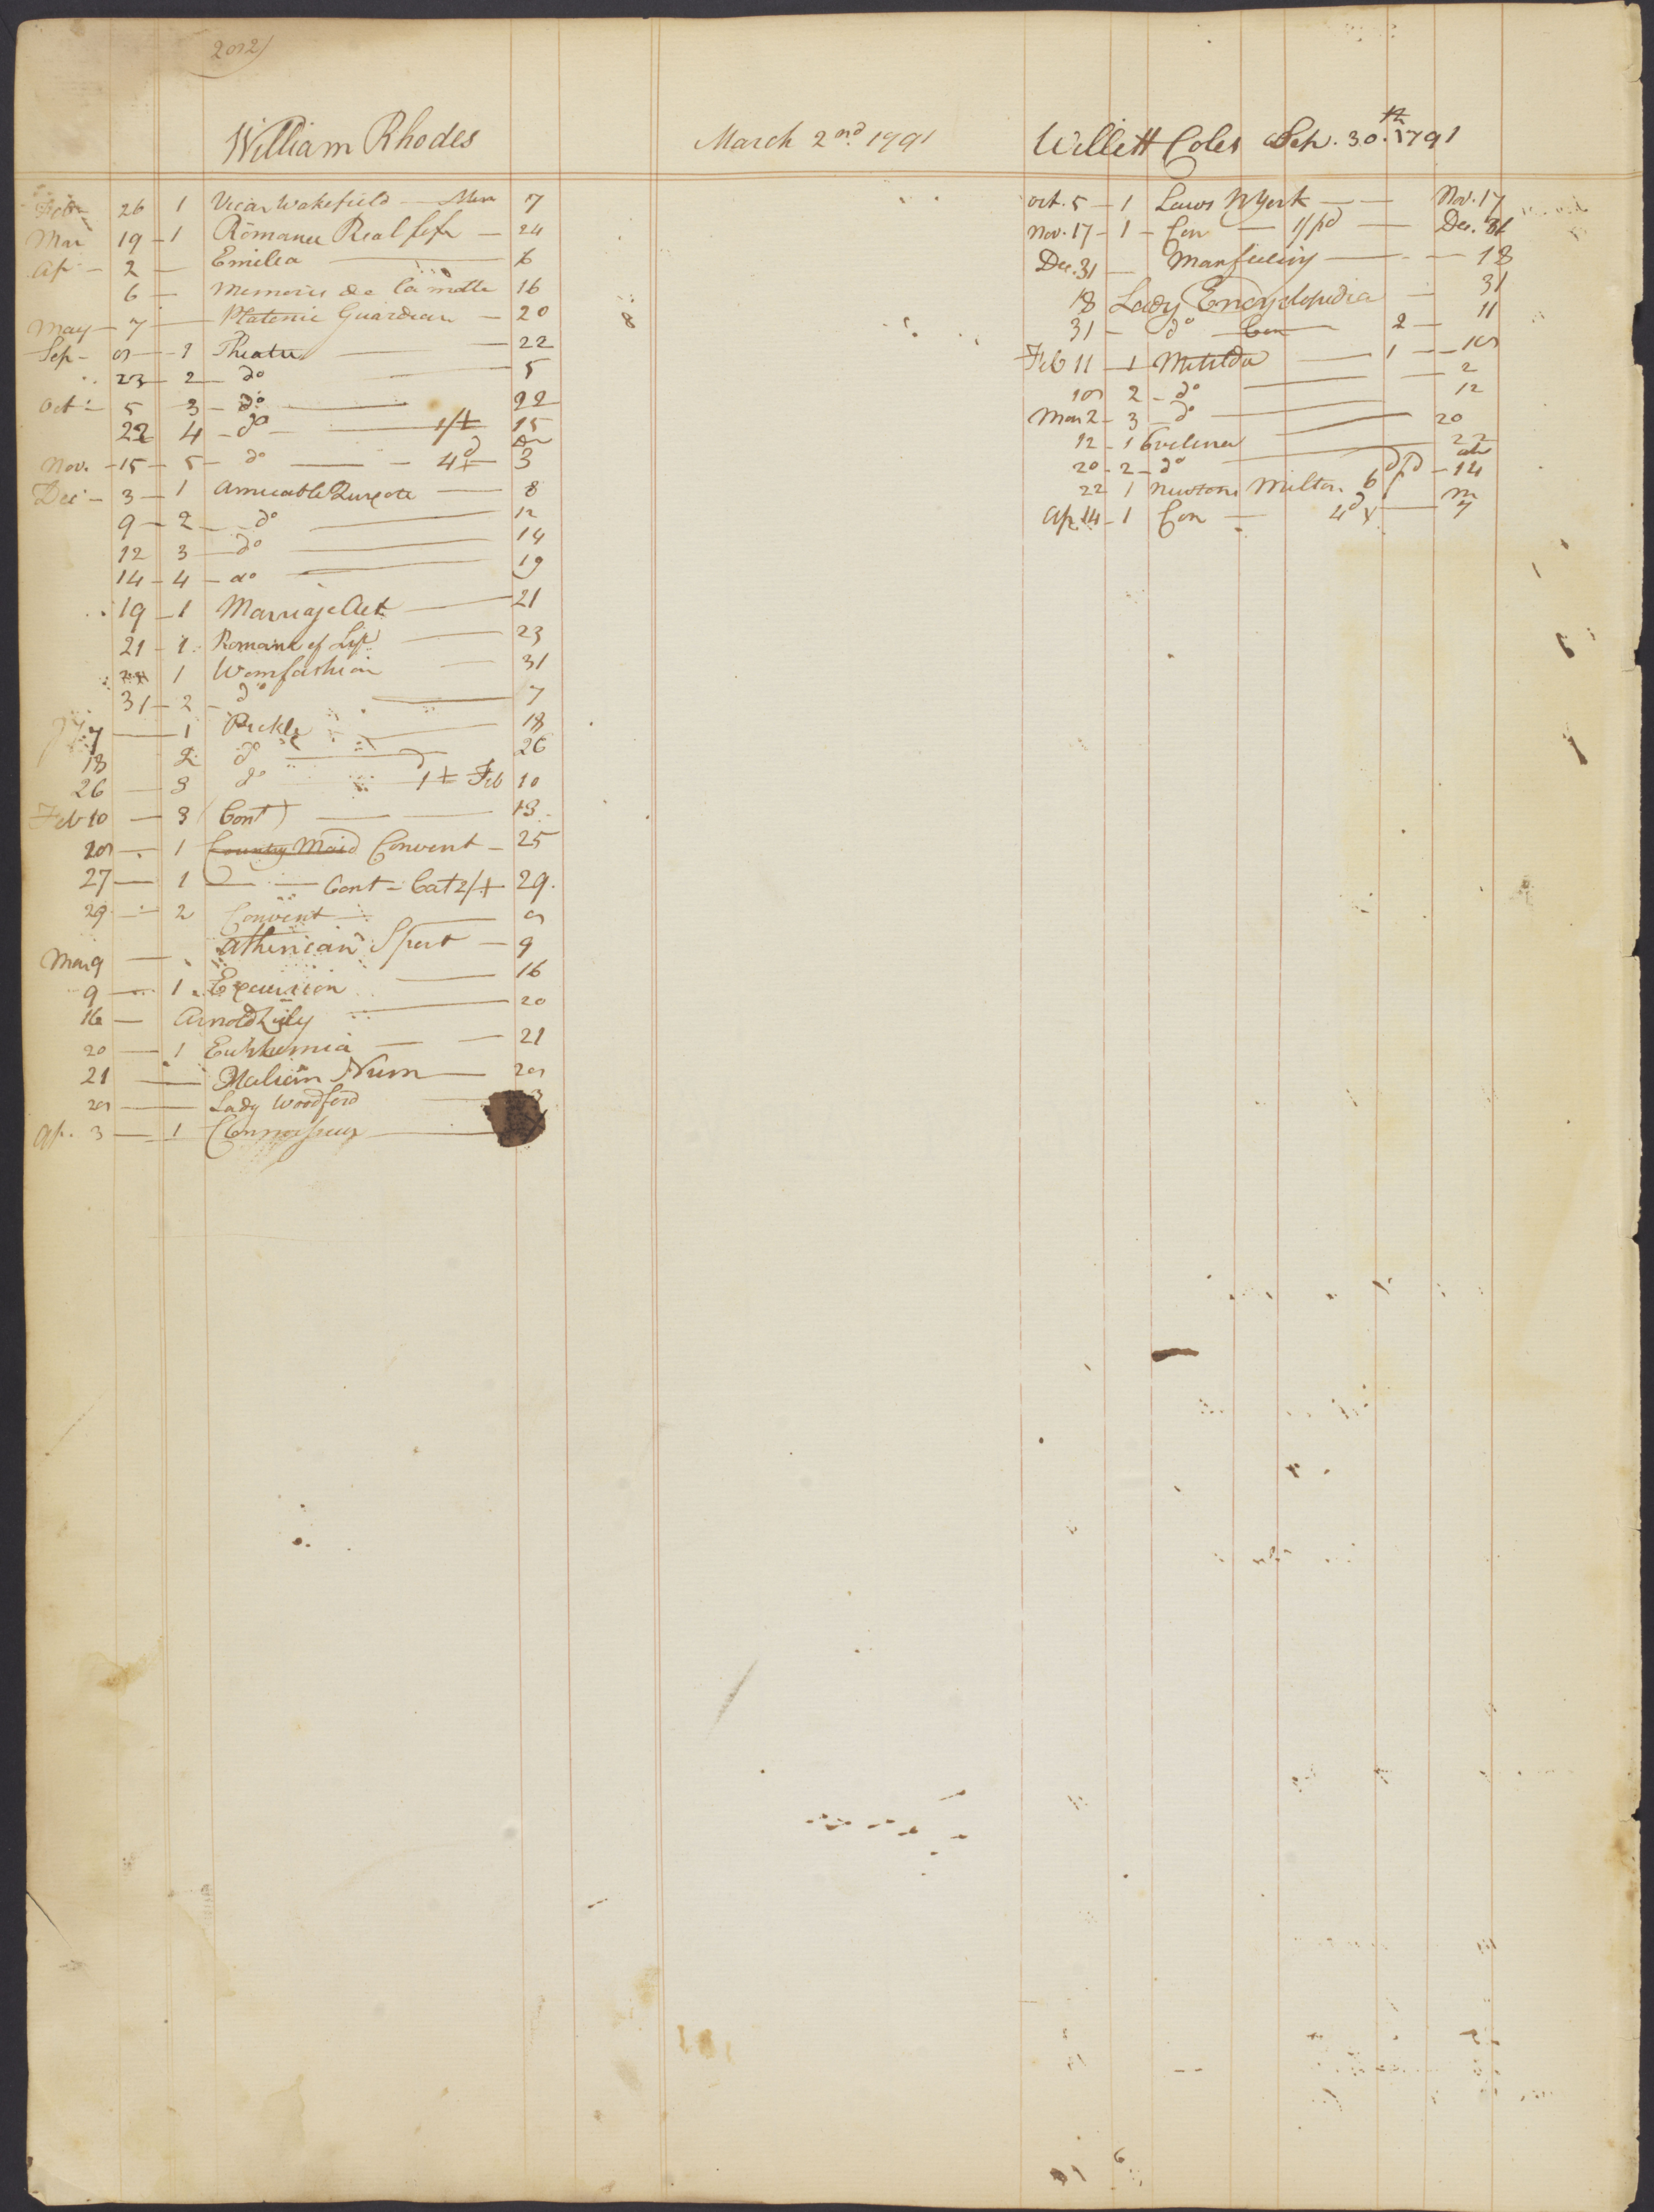 William Rhodes March 2nd 1791
26 1 Vicar Wakefield — Mar 7
Mar 19 – 1 Romance Real life — 24
Ap – 2 — Emilea — 6
6 — Memoirs de la motte 16
May – 7 — Platonic Guardian — 20
Sep – — 1 Theatre — 22
23 – 2 – do — 5
Oct – 5 3 – do — 22
22 4 – do — 1/+ 15
Nov. – 15 – 5 – do — 4d+ 3
Dec – 3 – 1 Amicable Quixote — 8
9 – 2 – do — 12
12 3 – do — 14
14 – 4 – do — 19
19 – 1 Marriage Act — 21
21 – 1 Romance of Life — 23
1 Womfashion — 31
31 – 2 – do — 7
7 — 1 Pickle — 18
18 2 do — 26
26 — 3 do — 1+ Feb 10
Feb 10 — 3 (Cont) — 13
— 1 Country Maid Convent – 25
27 — 1 — Cont – Cat 2/+ 29.
29 — 2 Convent —
Mar 9 — Athenian Spert — 9
9 — 1 Excursion — 16
16 — Arnold Zuly — 20
20 — 1 Euphemia — 21
21 — Italian Nun —
— Lady Woodford — 3
Ap. 3 — 1 Connoisseur —
Willett Coles Sep. 30.th 1791
Oct. 5 – 1 Laws NYork — Nov. 17
Nov. 17 – 1 – Con — 1/pd — Dec. 31
Dec. 31 — Manfeeling — 18
18 Lady Encyclopedia — 31
31 – do Con — 2 – 11
Feb 11 – 1 Matilda — 1 —
2 – do — 2
Mar 2 – 3 – do — 12
12 – 1 Evelina — 20
20 – 2 – do — 22
22 1 Newtons Milton 6d pd – 14
Ap. 14 – 1 Con — 4d